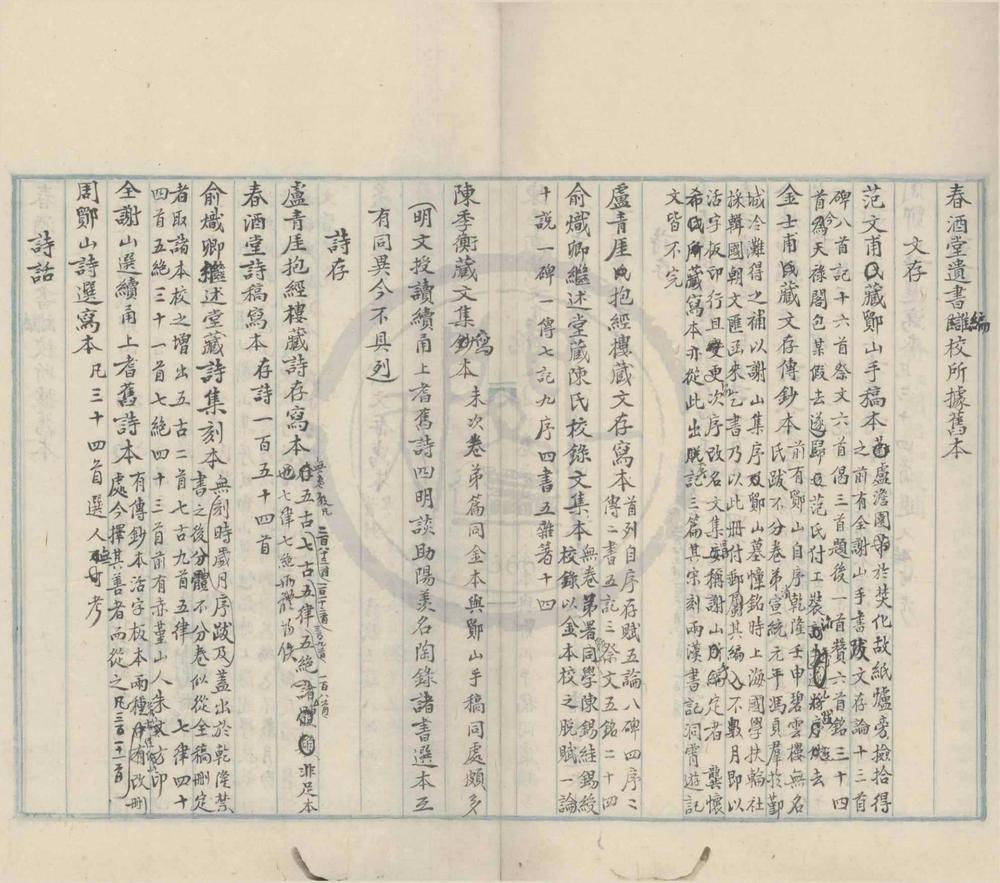 春酒堂遺書編讎校所據舊本
文存
范文甫氏藏鄮山手稿本 盧澹園弟於焚化故紙爐旁撿拾得
之前有全謝山手書跋文存論十三首
碑八首記十六首祭文六首偈三首題後一首贊六首銘三十四
首今為天祿閣包某假去遂歸范氏付工裝
金士甫氏藏文存傳鈔本 前有鄮山自序乾隆壬申碧雲樓無名
氏跋不分卷弟宣統元年馮貞羣於鄞
城冷灘得之補以謝山集序及鄮山墓幢銘時上海國學扶輪社
採輯國朝文匯函來乞書乃以此冊付郵其編入不數月即以
活字板印行且變更次序改名文集妄稱謝山所編定者 龔懷
希氏所藏寫本亦從此出脫記三篇其宋刻兩漢書記洞霄遊記
文皆不完
盧青厓氏抱經樓藏文存寫本 首列自序一存賦五論八碑四序二
傳二書五記三祭文五銘二十四
俞熾卿繼述堂藏陳氏校錄文集本 無卷弟署同學陳錫絓錫綬
校錄以金本校之脫賦一論
十說一碑一傳七記九序四書五雜著十四
陳季衡藏文集寫本 未次卷弟篇同金本與鄮山手稿同處頗多
(明文授讀續甬上耆舊詩四明談助陽羨名陶錄諸書選本互
有同異今不具列)
詩存
盧青厓抱經樓藏詩存寫本 存五古七古五律五絕諸體 非足本
也七律七絕兩體均佚
春酒堂詩稿寫本 存詩一百五十四首
俞熾卿繼述堂藏詩集刻本 無刻時歲月序跋及蓋出於乾隆禁
書之後分體不分卷似從全稿刪定
者取諸本校之增出五古二首七古九首五律 七律四十
四首五絕三十一首七絕四十三首前有赤堇山人朱 印
全謝山選續甬上耆舊詩本 有傳鈔本活字板本兩種 有改刪
處今擇其善者而從之凡三百二十二首
周鄮山詩選寫本 凡三十四首選人無考
詩話